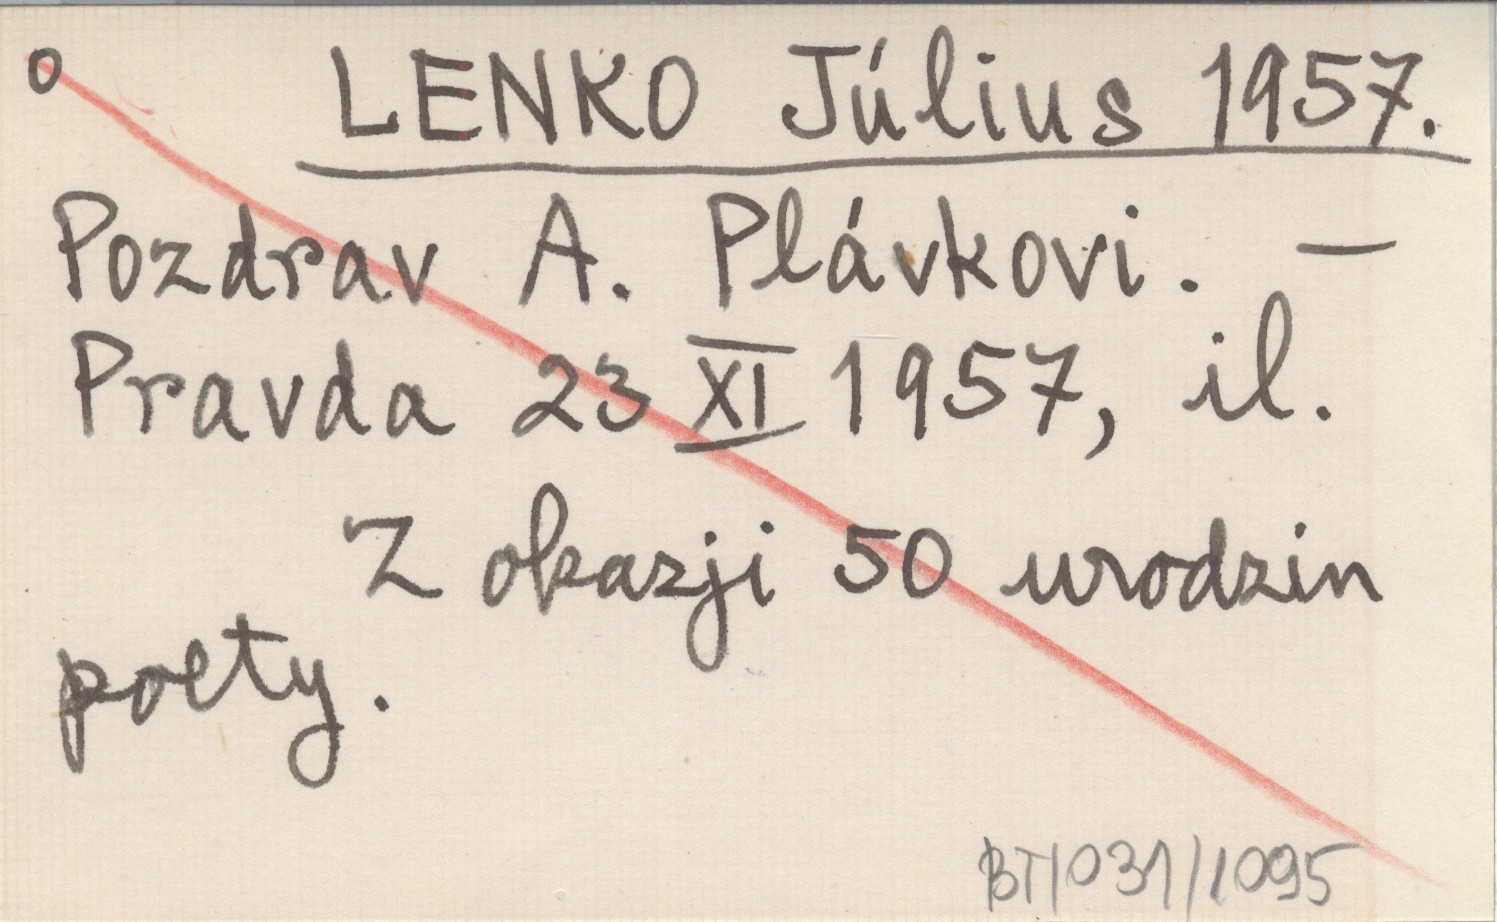 o LENKO Július 1957.
Pozdrav A. Plávkovi. —
Pravda 23 XI 1957, il.
Z okazji 50 urodzin
poety.
BT/031/1095